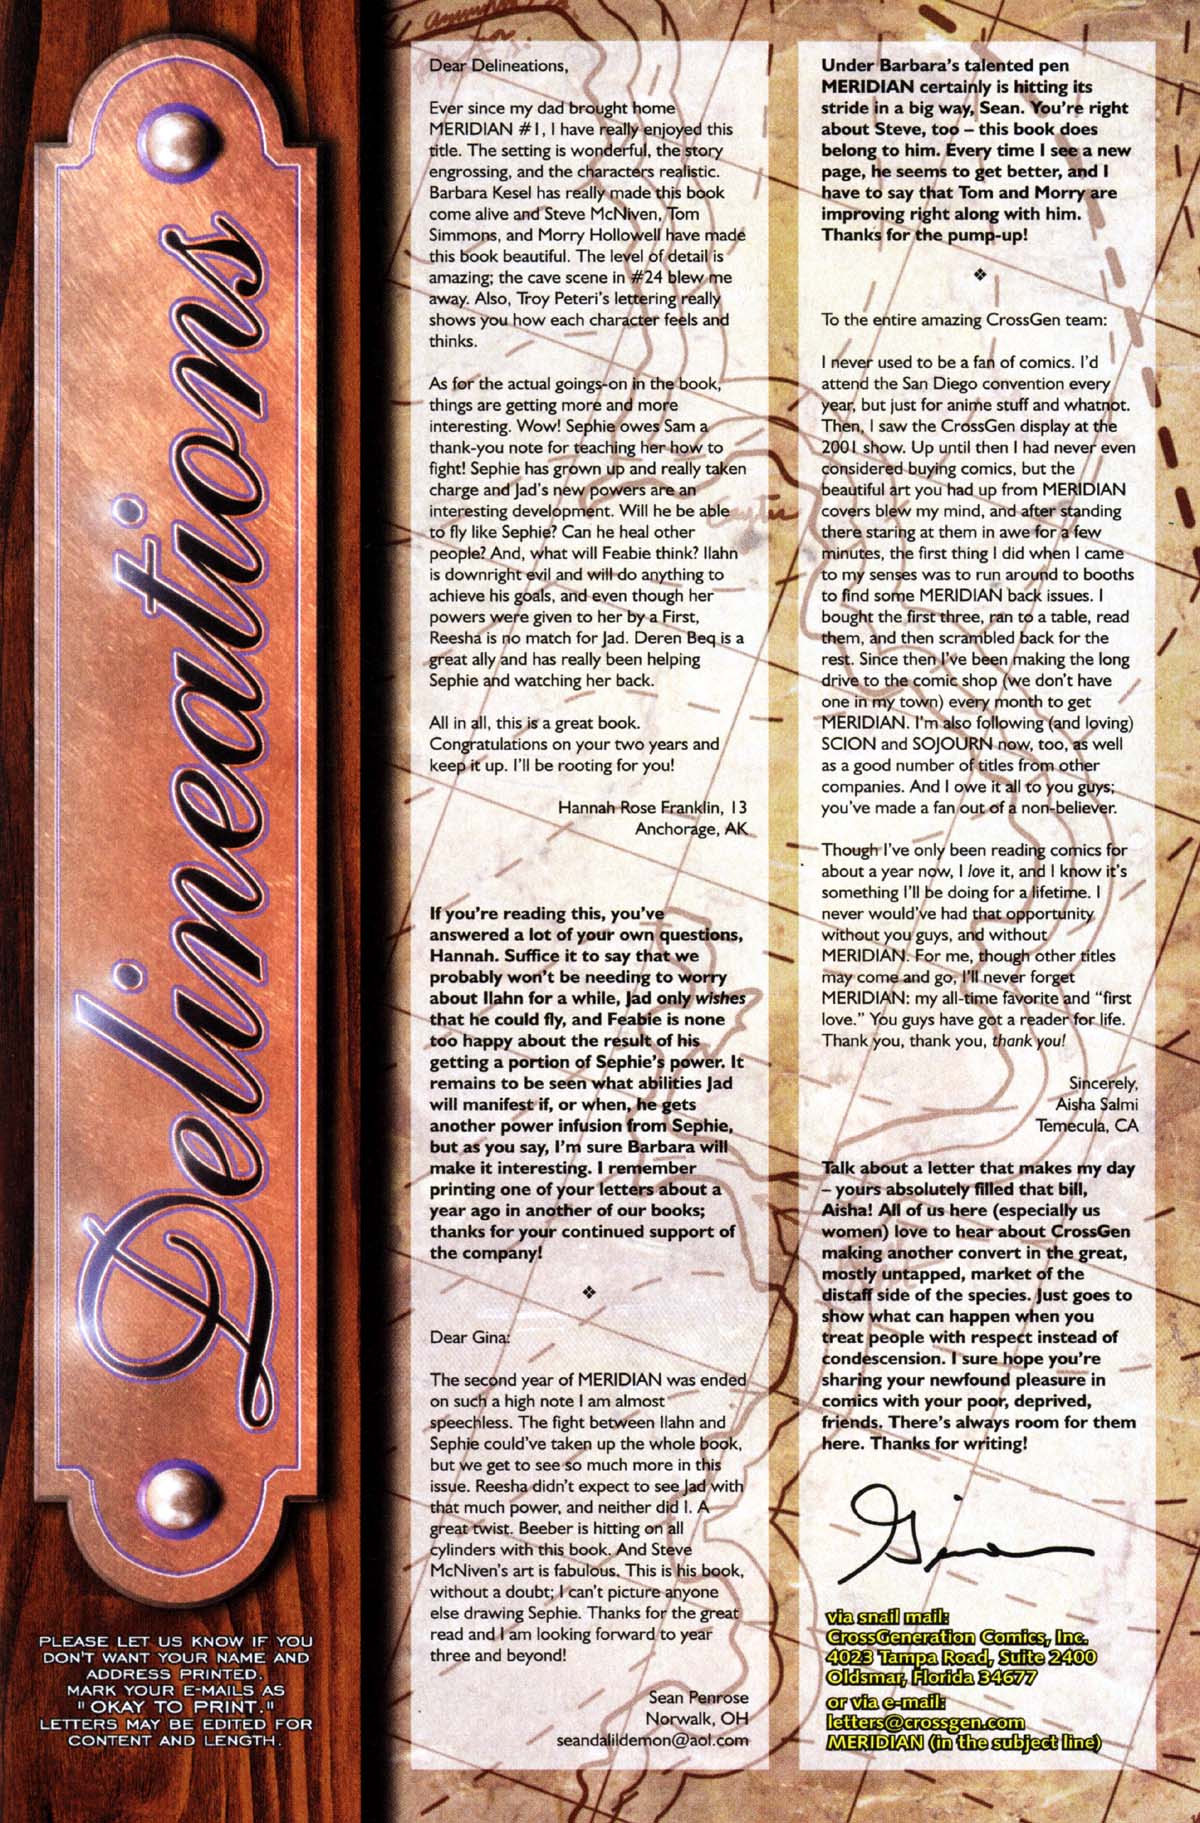 Delineations
PLEASE LET US KNOW IF YOU
DON'T WANT YOUR NAME AND
ADDRESS PRINTED.
MARK YOUR E-MAILS AS
"OKAY TO PRINT."
LETTERS MAY BE EDITED FOR
CONTENT AND LENGTH.
Dear Delineations,
Ever since my dad brought home
MERIDIAN #1, I have really enjoyed this
title. The setting is wonderful, the story
engrossing, and the characters realistic.
Barbara Kesel has really made this book
come alive and Steve McNiven, Tom
Simmons, and Morry Hollowell have made
this book beautiful. The level of detail is
amazing; the cave scene in #24 blew me
away. Also, Troy Peteri's lettering really
shows you how each character feels and
thinks.
As for the actual goings-on in the book,
things are getting more and more
interesting. Wow! Sephie owes Sam a
thank-you note for teaching her how to
fight! Sephie has grown up and really taken
charge and Jad's new powers are an
interesting development. Will he be able
to fly like Sephie? Can he heal other
people? And, what will Feabie think? Ilahn
is downright evil and will do anything to
achieve his goals, and even though her
powers were given to her by a First,
Reesha is no match for Jad. Deren Beq is a
great ally and has really been helping
Sephie and watching her back.
All in all, this is a great book.
Congratulations on your two years and
keep it up. I'll be rooting for you!
Hannah Rose Franklin, 13
Anchorage, AK
If you're reading this, you've
answered a lot of your own questions,
Hannah. Suffice it to say that we
probably won't be needing to worry
about Ilahn for a while, Jad only wishes
that he could fly, and Feabie is none
too happy about the result of his
getting a portion of Sephie's power. It
remains to be seen what abilities Jad
will manifest if, or when, he gets
another power infusion from Sephie,
but as you say, I'm sure Barbara will
make it interesting. I remember
printing one of your letters about a
year ago in another of our books;
thanks for your continued support of
the company!
❖
Dear Gina:
The second year of MERIDIAN was ended
on such a high note I am almost
speechless. The fight between Ilahn and
Sephie could've taken up the whole book,
but we get to see so much more in this
issue. Reesha didn't expect to see Jad with
that much power, and neither did I. A
great twist. Beeber is hitting on all
cylinders with this book. And Steve
McNiven's art is fabulous. This is his book,
without a doubt; I can't picture anyone
else drawing Sephie. Thanks for the great
read and I am looking forward to year
three and beyond!
Sean Penrose
Norwalk, OH
seandalildemon@aol.com
Under Barbara's talented pen
MERIDIAN certainly is hitting its
stride in a big way, Sean. You're right
about Steve, too – this book does
belong to him. Every time I see a new
page, he seems to get better, and I
have to say that Tom and Morry are
improving right along with him.
Thanks for the pump-up!
❖
To the entire amazing CrossGen team:
I never used to be a fan of comics. I'd
attend the San Diego convention every
year, but just for anime stuff and whatnot.
Then, I saw the CrossGen display at the
2001 show. Up until then I had never even
considered buying comics, but the
beautiful art you had up from MERIDIAN
covers blew my mind, and after standing
there staring at them in awe for a few
minutes, the first thing I did when I came
to my senses was to run around to booths
to find some MERIDIAN back issues. I
bought the first three, ran to a table, read
them, and then scrambled back for the
rest. Since then I've been making the long
drive to the comic shop (we don't have
one in my town) every month to get
MERIDIAN. I'm also following (and loving)
SCION and SOJOURN now, too, as well
as a good number of titles from other
companies. And I owe it all to you guys;
you've made a fan out of a non-believer.
Though I've only been reading comics for
about a year now, I love it, and I know it's
something I'll be doing for a lifetime. I
never would've had that opportunity
without you guys, and without
MERIDIAN. For me, though other titles
may come and go, I'll never forget
MERIDIAN: my all-time favorite and "first
love." You guys have got a reader for life.
Thank you, thank you, thank you!
Sincerely,
Aisha Salmi
Temecula, CA
Talk about a letter that makes my day
– yours absolutely filled that bill,
Aisha! All of us here (especially us
women) love to hear about CrossGen
making another convert in the great,
mostly untapped, market of the
distaff side of the species. Just goes to
show what can happen when you
treat people with respect instead of
condescension. I sure hope you're
sharing your newfound pleasure in
comics with your poor, deprived,
friends. There's always room for them
here. Thanks for writing!
Gina
via snail mail:
CrossGeneration Comics, Inc.
4023 Tampa Road, Suite 2400
Oldsmar, Florida 34677
or via e-mail:
letters@crossgen.com
MERIDIAN (in the subject line)